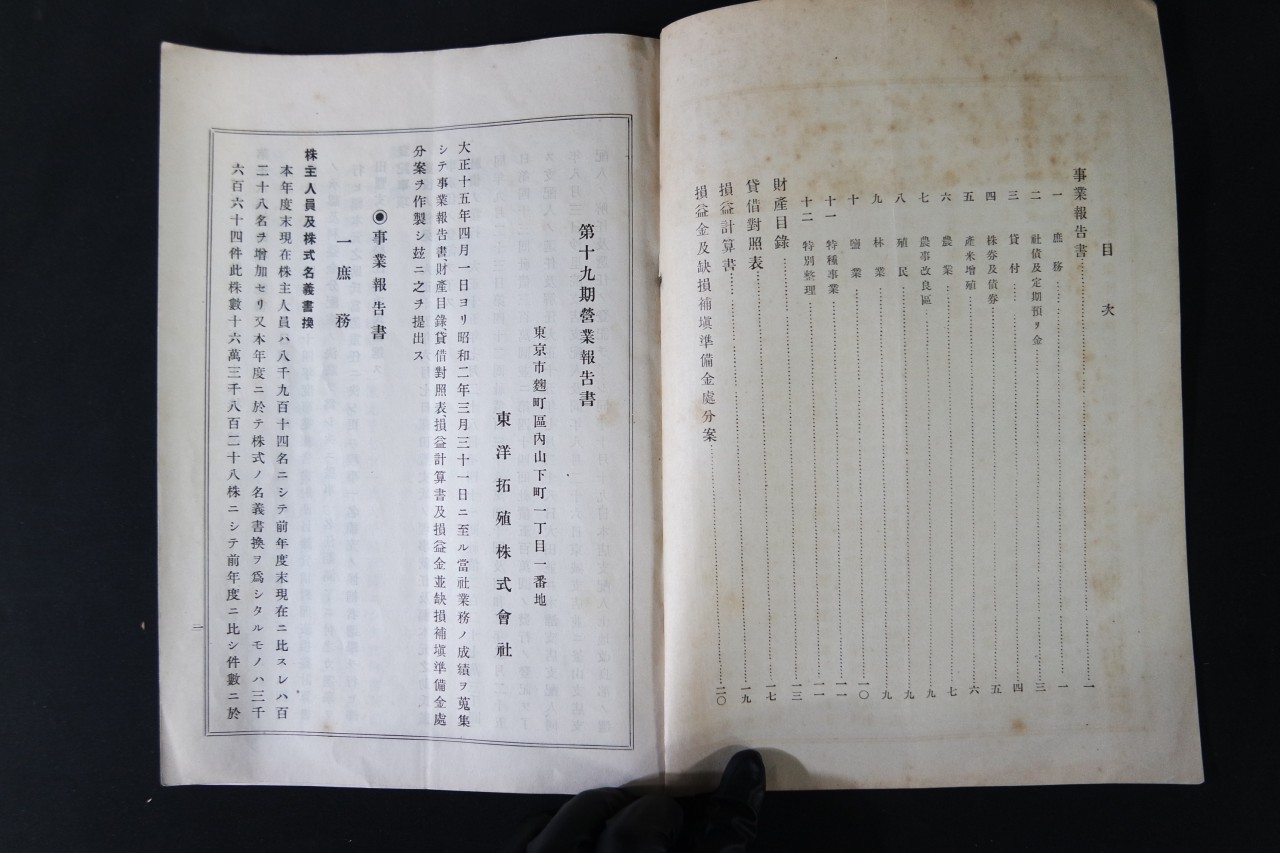 目次
事業報告書……一
一 庶務……一
二 社債及定期預リ金……三
三 貸付……四
四 株券及債券……五
五 產米增殖……六
六 農業……七
七 農事改良區……九
八 殖民……九
九 林業……九
十 鹽業……一〇
十一 特種事業……一一
十二 特別整理……一三
財產目錄……一七
貸借對照表
損益計算書……一九
損益金及缺損補塡準備金處分案……二〇
第十九期營業報吿書
東京市麹町區內山下町一丁目一番地
東洋拓殖株式會社
大正十五年四月一日ヨリ昭和二年三月三十一日ニ至ル當社業務ノ成績ヲ蒐集
シテ事業報告書、財產目錄貸借對照表、損益計算書及損益金並缺損補塡準備金處
分案ヲ作製シ玆ニ之ヲ提出ス
◉事業報告書
一 庶務
株主人員及株式名義書換
本年度末現在株主人員ハ八千九百十四名ニシテ前年度末現在ニ比スレハ百
二十八名ヲ增加セリ又本年度ニ於テ株式ノ名義書換ヲ爲シタルモノハ三千
六百六十四件此株數十六萬三千八百二十八株ニシテ前年度ニ比シ件數ニ於
一